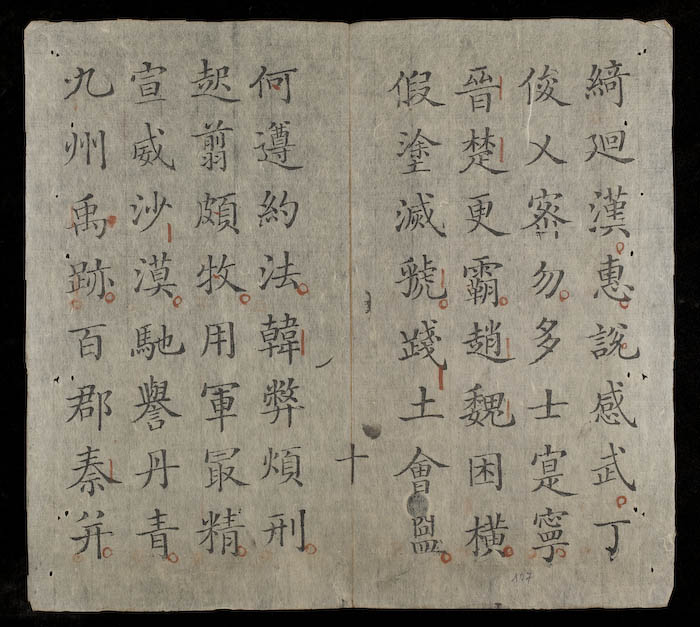 綺廻漢惠說感武丁
俊乂宻勿多士寔寧
晉楚更霸趙魏困橫
假塗滅虢踐土會盟
十
何遵約法韓弊煩刑
起翦頗牧用軍最精
宣威沙漠馳譽丹青
九州禹跡百郡秦并
107